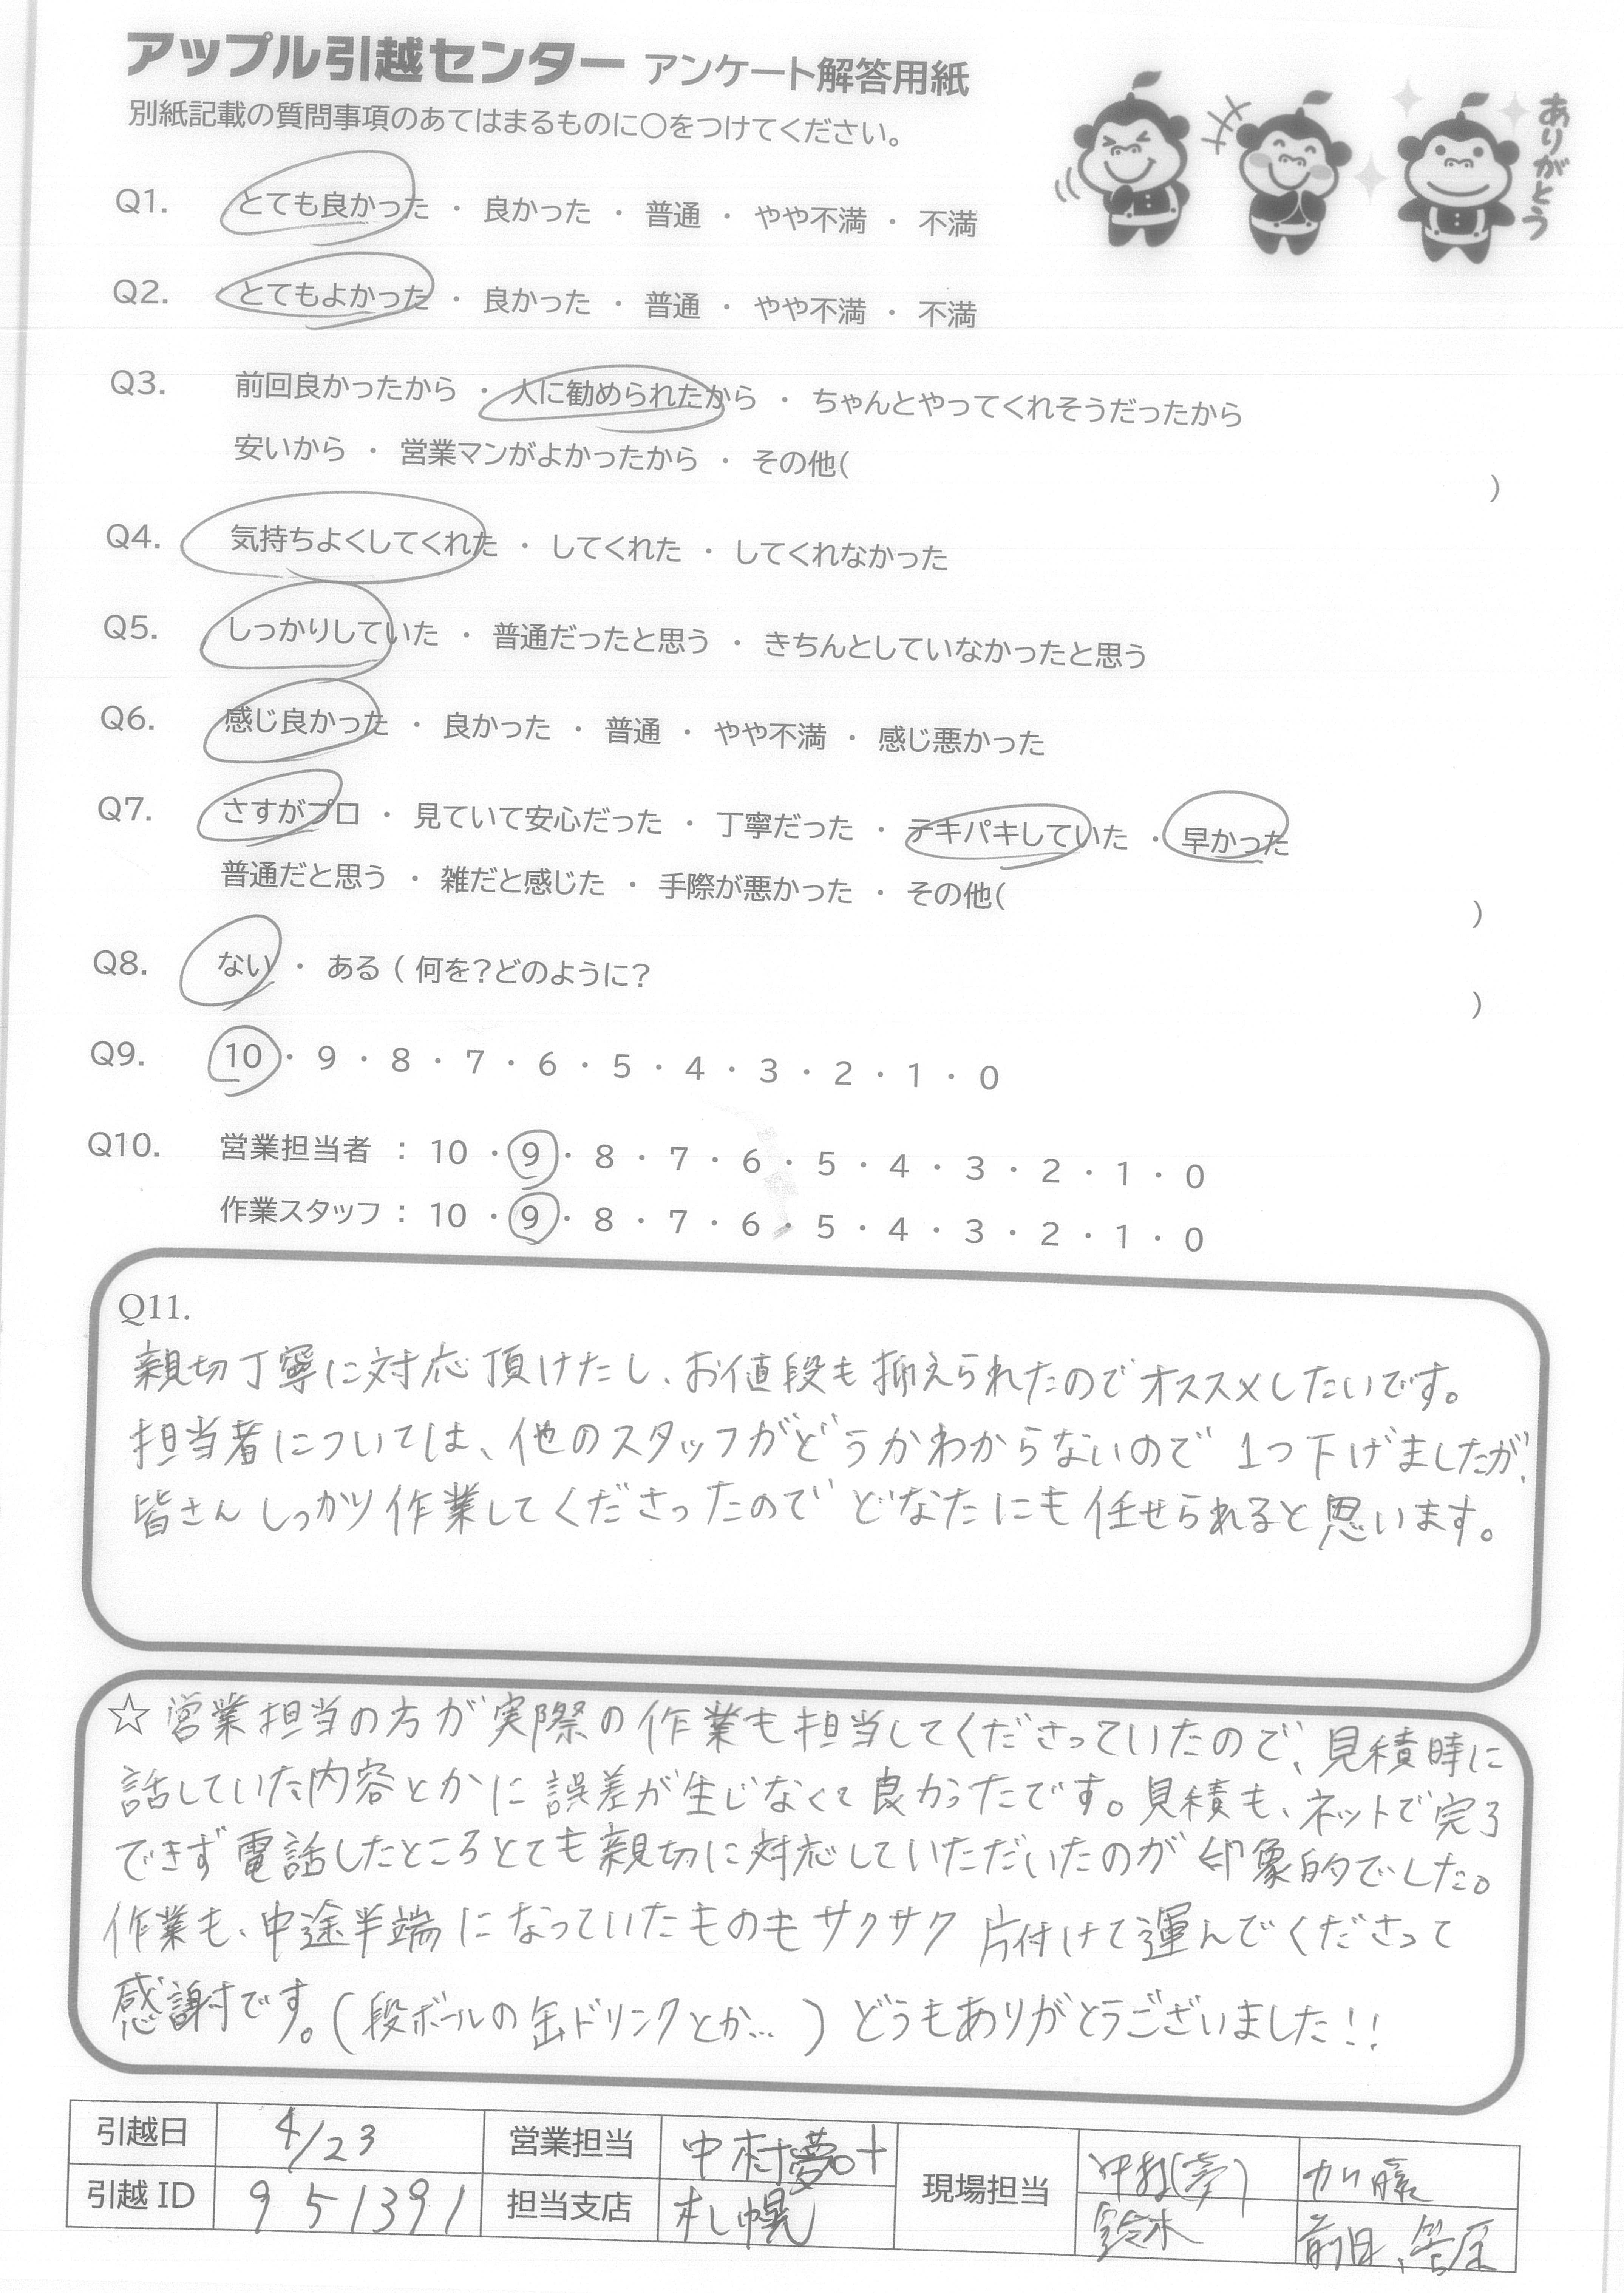 アップル引越センター アンケート解答用紙
別紙記載の質問事項のあてはまるものに○をつけてください。
ありがとう
Q1. とても良かった ・ 良かった ・ 普通 ・ やや不満 ・ 不満
Q2. とてもよかった ・ 良かった ・ 普通 ・ やや不満 ・ 不満
Q3. 前回良かったから ・ 人に勧められたから ・ ちゃんとやってくれそうだったから
安いから ・ 営業マンがよかったから ・ その他( )
Q4. 気持ちよくしてくれた ・ してくれた ・ してくれなかった
Q5. しっかりしていた ・ 普通だったと思う ・ きちんとしていなかったと思う
Q6. 感じ良かった ・ 良かった ・ 普通 ・ やや不満 ・ 感じ悪かった
Q7. さすがプロ ・ 見ていて安心だった ・ 丁寧だった ・ テキパキしていた ・ 早かった
普通だと思う ・ 雑だと感じた ・ 手際が悪かった ・ その他( )
Q8. ない ・ ある ( 何を?どのように? )
Q9. 10 ・ 9 ・ 8 ・ 7 ・ 6 ・ 5 ・ 4 ・ 3 ・ 2 ・ 1 ・ 0
Q10. 営業担当者 : 10 ・ 9 ・ 8 ・ 7 ・ 6 ・ 5 ・ 4 ・ 3 ・ 2 ・ 1 ・ 0
作業スタッフ : 10 ・ 9 ・ 8 ・ 7 ・ 6 ・ 5 ・ 4 ・ 3 ・ 2 ・ 1 ・ 0
Q11.
親切丁寧に対応頂けたし、お値段も抑えられたのでオススメしたいです。
担当者については、他のスタッフがどうかわからないので 1つ下げましたが、
皆さんしっかり作業してくださったので どなたにも任せられると思います。
☆営業担当の方が実際の作業も担当してくださっていたので、見積時に
話していた内容とかに誤差が生じなくて良かったです。見積も、ネットで完了
できず電話したところとても親切に対応していただいたのが印象的でした。
作業も、中途半端になっていたものもサクサク片付けて運んでくださって
感謝です。(段ボールの缶ドリンクとか…) どうもありがとうございました!!
引越日 4/23 営業担当 中村夢叶 現場担当 中村(夢) 加藤
引越 ID 951391 担当支店 札幌 鈴木 前田、笹原